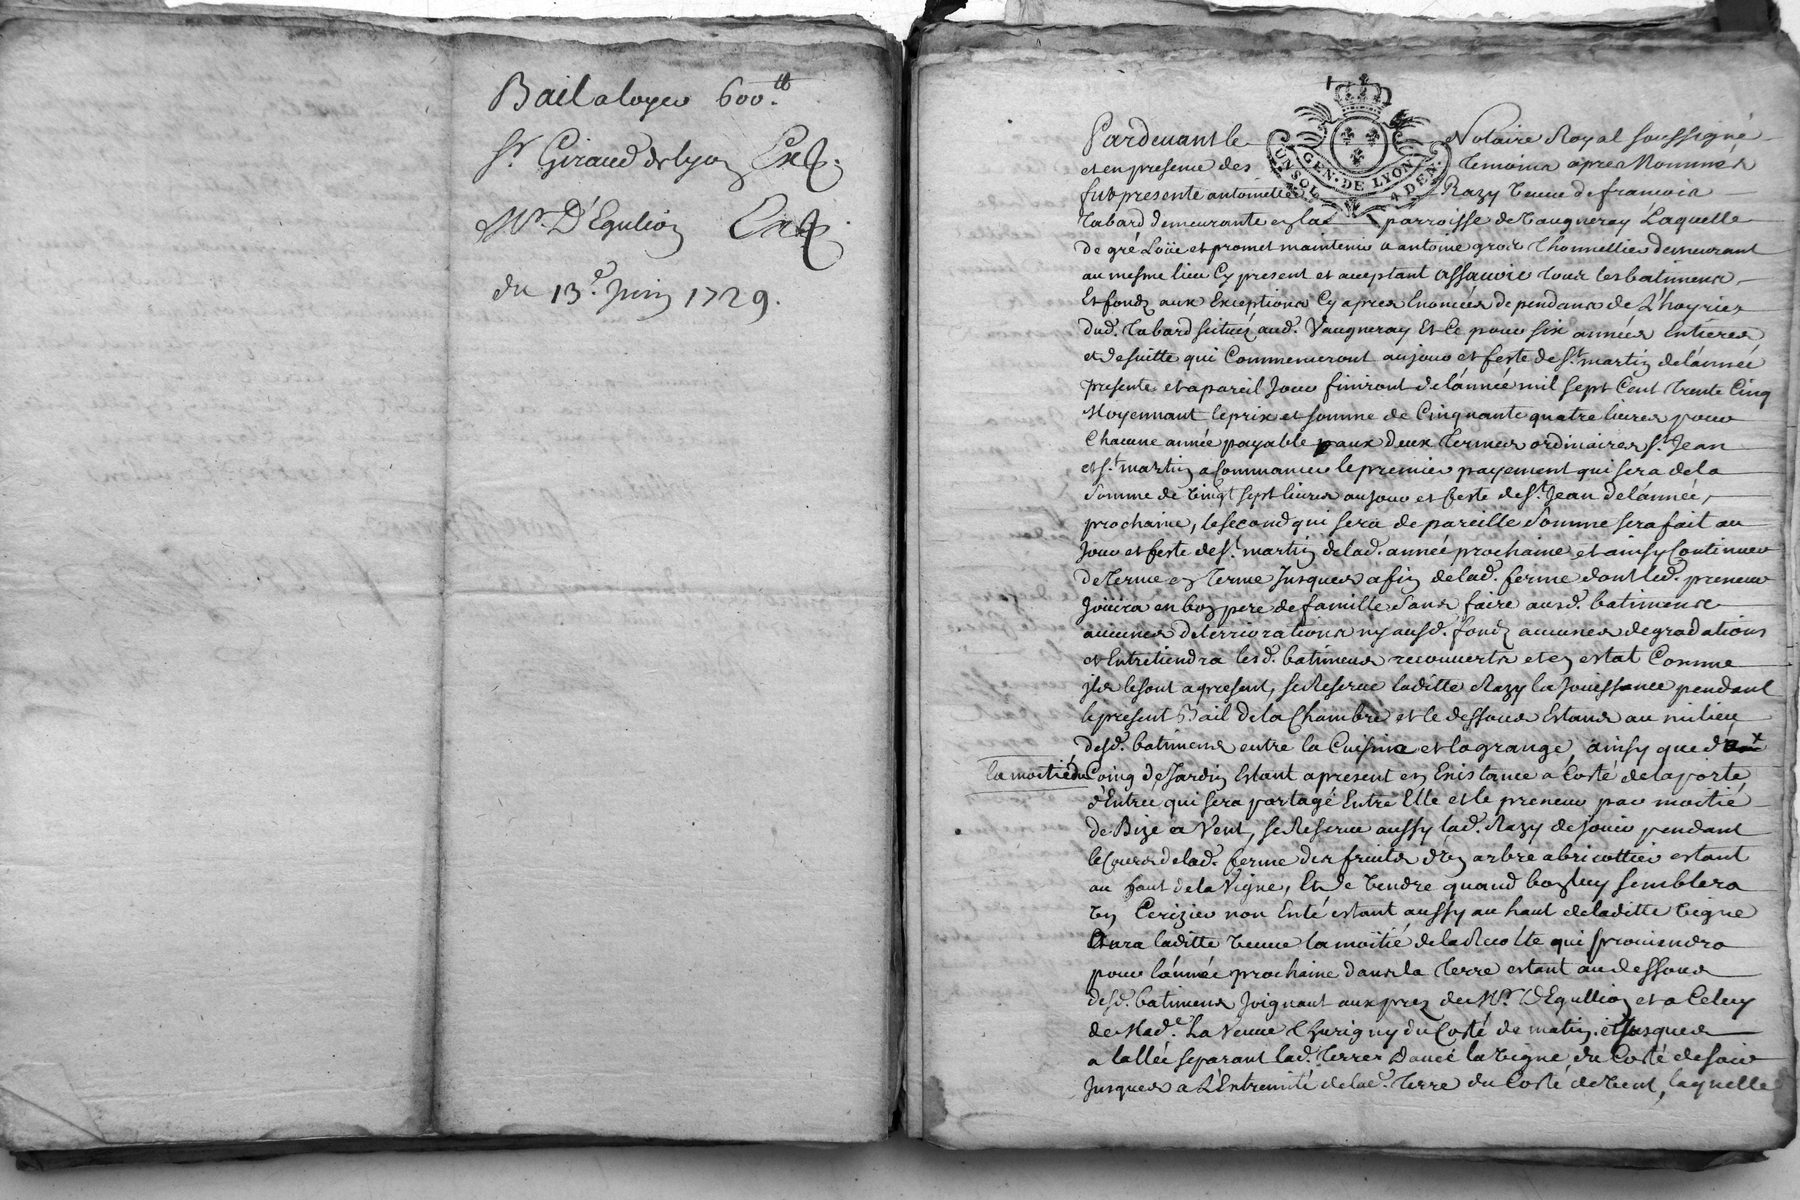 Bail a loyer 600.tt
Sr. Giraud de Lyon Exp.
Mr. D'Egulion Exp.
du 13.e Juin 1729.
Pardevant le Notaire Royal soussigné
et en presence des temoins apres nommés
fut presente antoinette Razy veuve de francois
tabard demeurante en la parroisse de vaugneray Laquelle
de gré Loüe et promet maintenir a antoine groz thonnellier demeurant
au mesme lieu cy present et aceptant assavoir tous les batimens
et fondz aux exceptions cy apres enoncées dependans de L'hoyries
dud. tabard scitués aud. Vaugneray et ce pour six années entieres
et de suitte qui commenceront au jour et feste de St. martin de l'année
presente et a pareil jour finiront de l'année mil sept cent trente cinq
Moyennant le prix et somme de cinquante quatre livres pour
chacune année payable aux deux termes ordinaires St. Jean
et St. martin a commancer le premier payement qui sera de la
somme de vingt sept livres au jour et feste de St. Jean de l'année
prochaine, le second qui sera de pareille somme sera fait au
jour et feste de St. martin de lad. année prochaine et ainsy continuer
de terme en terme jusques a fin de lad. ferme dont led. preneur
joüira en bon pere de famille sans faire ausd. batimens
aucunes deterriorations ny ausd. fondz aucunes degradations
et entretiendra lesd. batimens recouverts et en estat comme
ils le sont a present, se Reserve laditte Razy la joüissance pendant
le present Bail de la chambre et le dessous estans au milieu
desd. batimens entre la cuisine et la grange, ainsy que d
la moitié du
Coing de jardin estant a present en existance a costé de la porte
d'entrée qui sera partagé entre elle et le preneur par moitié
de Bize a vent, se Reserve aussy lad. Razy de joüir pendant
le cours de lad. ferme des fruits d'un arbre abricottier estant
au haut de la Vigne, et de vendre quand bon luy semblera
un cerizier non enté estant aussy au haut de laditte vigne
aura laditte veuve la moitié de la Recolte qui proviendra
pour l'année prochaine dans la terre estant au dessous
desd. batimens joignant aux prez de Mr. D'Egullion et a celuy
de Made. La veuve du costé de matin, et jusques
a lallée separant lad. terre d'avec la vigne du costé de soir
jusques a L'extremité de lad. terre du costé de vent, laquelle
GEN. DE LYON
UN SOL 4 DEN.